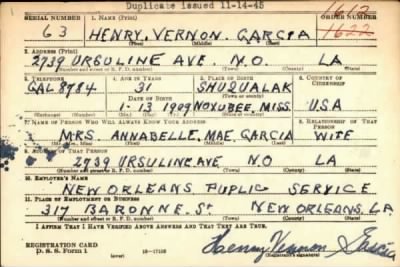 Duplicate issued 11-14-45
SERIAL NUMBER 1. NAME (Print) ORDER NUMBER
1612
63 HENRY. VERNON. GARCIA 1622
(First) (Middle) (Last)
2. ADDRESS (Print)
2739 URSULINE AVE. N.O. LA
(Number and street or R. F. D. number) (Town) (County) (State)
3. TELEPHONE 4. AGE IN YEARS 5. PLACE OF BIRTH 6. COUNTRY OF CITIZENSHIP
GAL 8784 31 SHUQUALAK
DATE OF BIRTH
1-13 1909 NOXUBEE, MISS. USA
(Exchange) (Number) (Mo.) (Day) (Yr.) (Town or county) (State or country)
7. NAME OF PERSON WHO WILL ALWAYS KNOW YOUR ADDRESS 8. RELATIONSHIP OF THAT PERSON
MRS. ANNABELLE, MAE, GARCIA WIFE
(Mr., Mrs., Miss) (First) (Middle) (Last)
9. ADDRESS OF THAT PERSON
2739 URSULINE AVE N.O LA
(Number and street or R. F. D. number) (Town) (County) (State)
10. EMPLOYER'S NAME
NEW ORLEANS PUBLIC SERVICE
11. PLACE OF EMPLOYMENT OR BUSINESS
317 BARONNE. St NEW ORLEANS. LA.
(Number and street or R. F. D. number) (Town) (County) (State)
I AFFIRM THAT I HAVE VERIFIED ABOVE ANSWERS AND THAT THEY ARE TRUE.
REGISTRATION CARD
D. S. S. Form 1 Henry Vernon Garcia
(Registrant's signature)